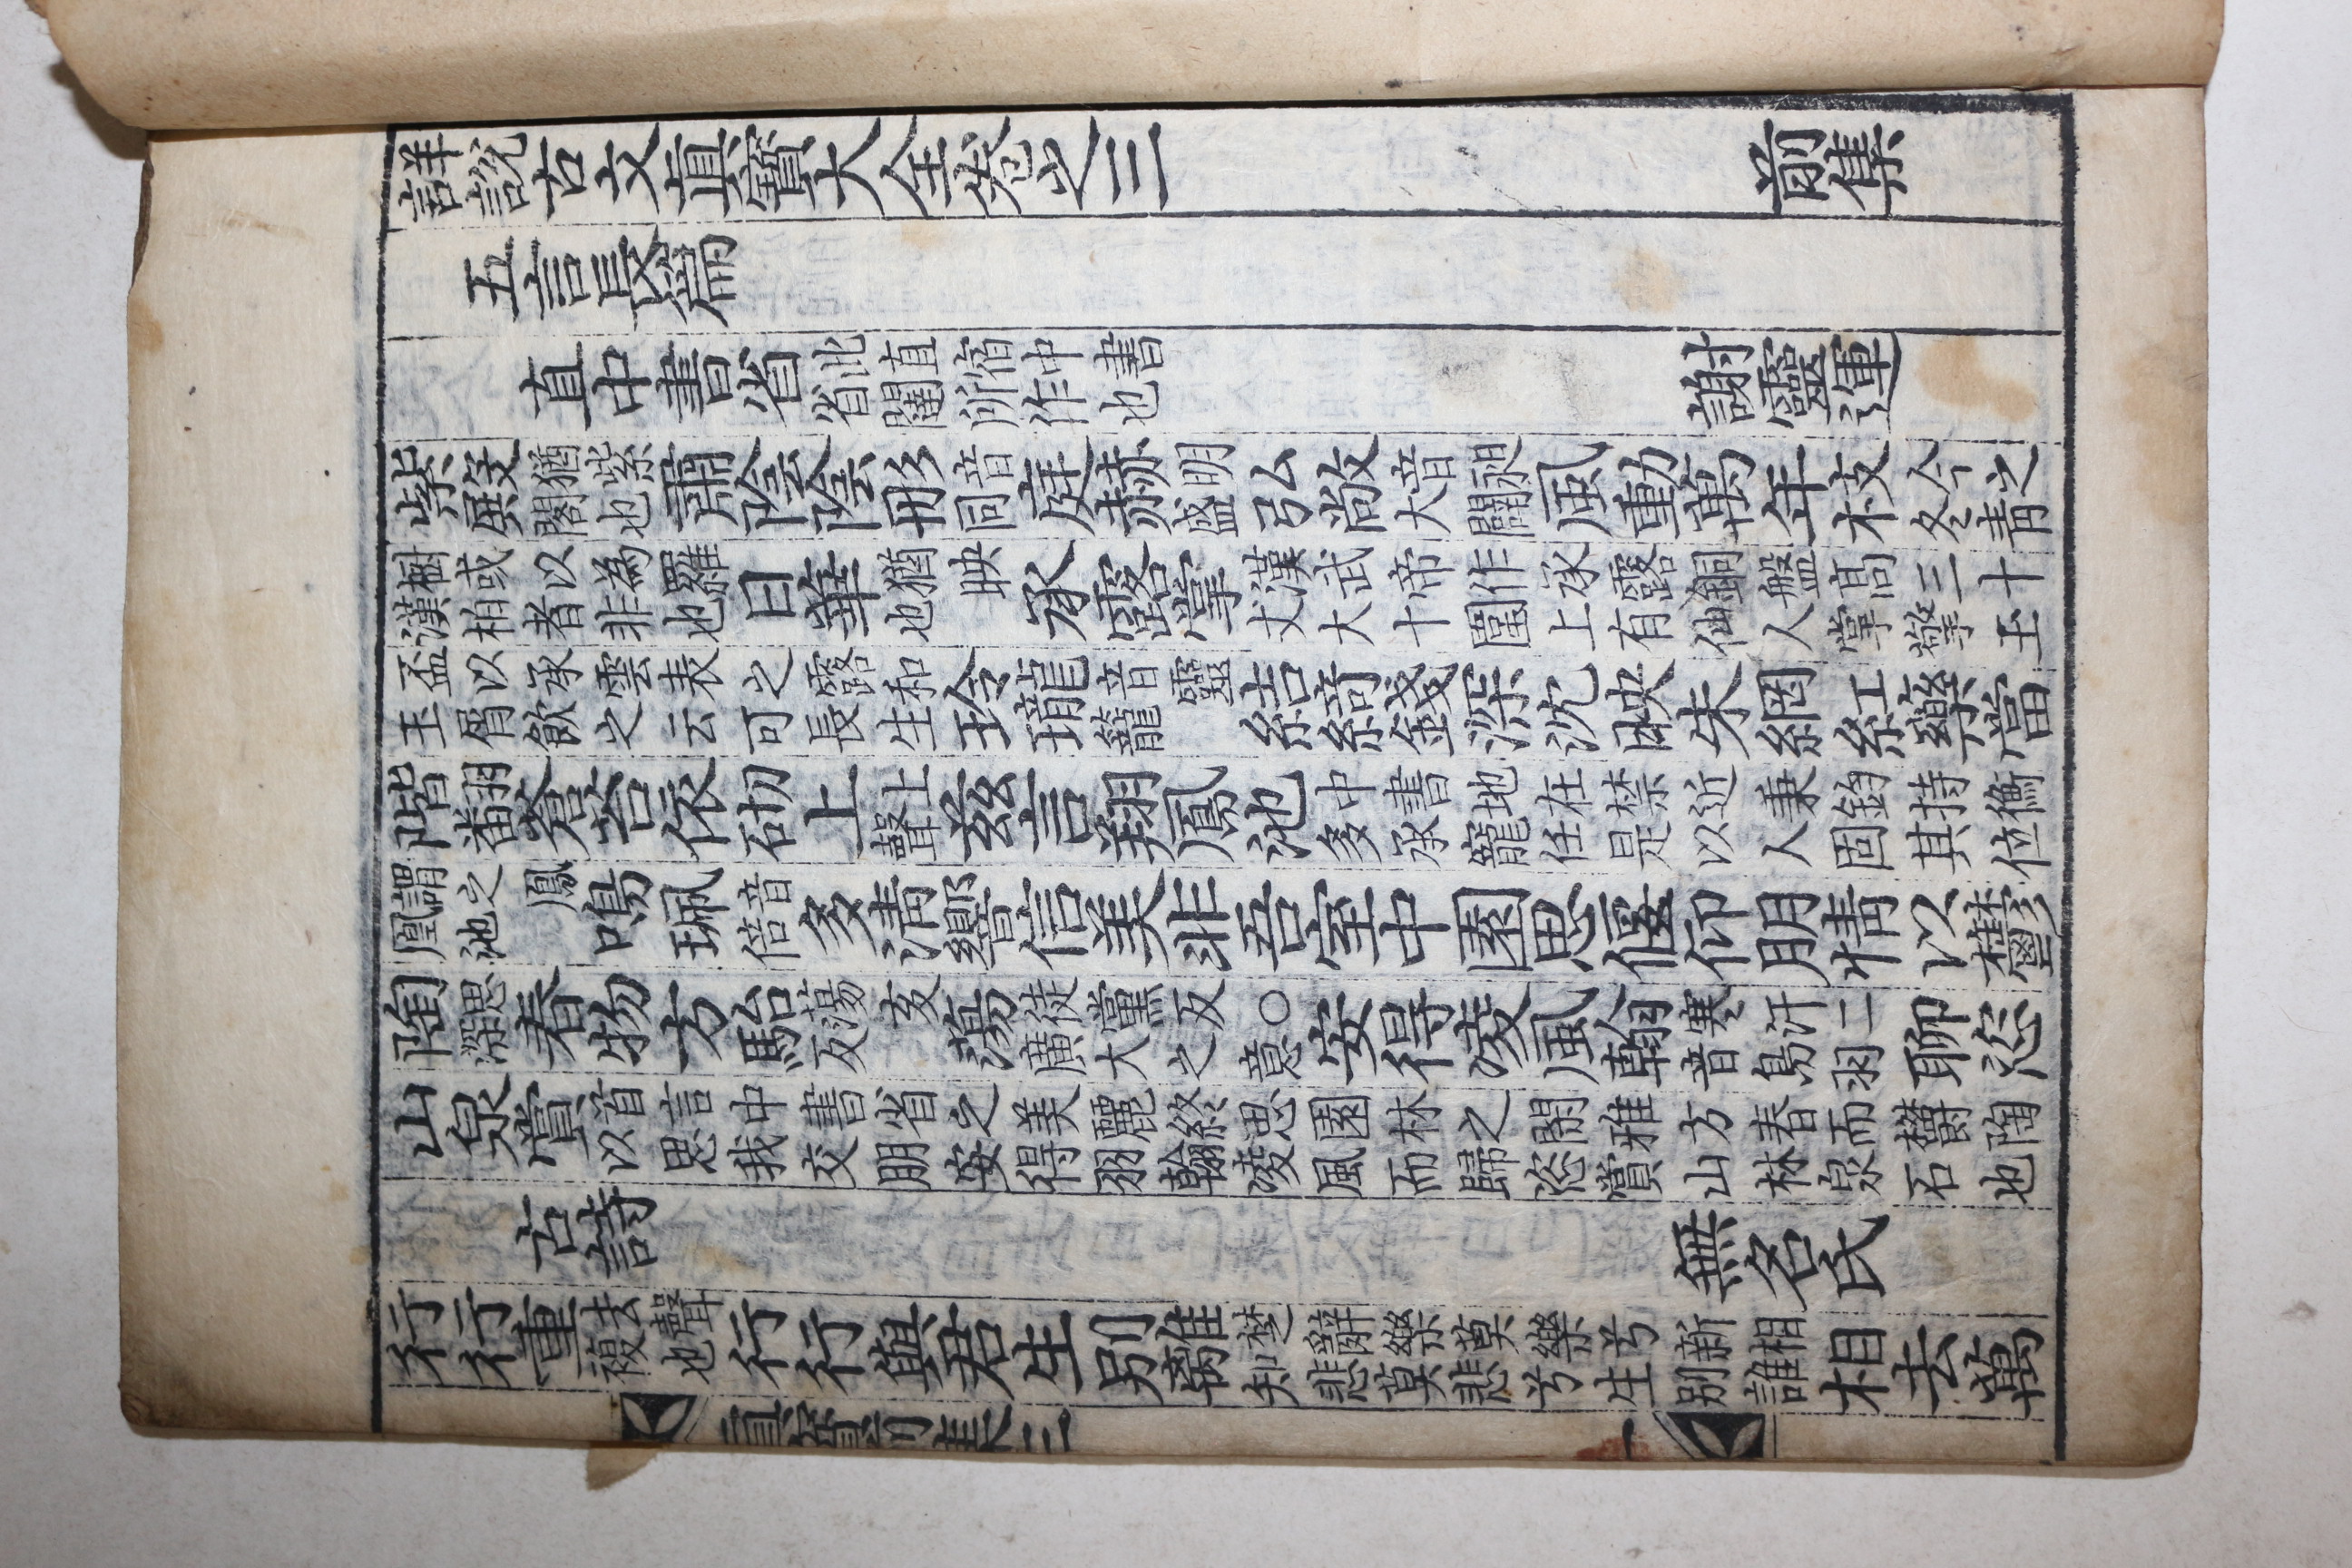 詳說古文眞寶大全卷之三 前集
五言長篇
直中書省 此直宿中書省闥所作也 謝靈運
紫殿猶紫閣也肅陰陰彤音同庭赫明盛弘敞音昶大闢風動萬年枝今之冬靑
樹或以為羅漢柏者非也日華猶映也承露掌漢武帝作承露銅盤髙三十丈大十圍上有仙人掌擎玉
盃以承雲表之露和玉屑飲之云可長生玲瓏音靈籠結綺錢深沈映朱網紅藥當
階翻蒼苔依砌上上聲兹言翔鳳池中書地在禁近秉鈞持衡多承寵任是以人固其位
謂之鳳凰池鳴珮音倍多淸響信美非吾室中園思偃仰朋情以鬱
陶思深春物方駘蕩亥反蕩徒黨反○廣大之意安得凌風翰寒汗二音鳥羽聊恣
山泉賞首言中書省之美麗終思園林之閑雅方春而欝陶以思我交朋安得羽翰凌風而歸恣賞山林泉石也
古詩 無名氏
行行重去聲複也行行與君生别離楚辭樂莫樂兮新相知悲莫悲兮生别誰相去萬
眞寶前集三 一